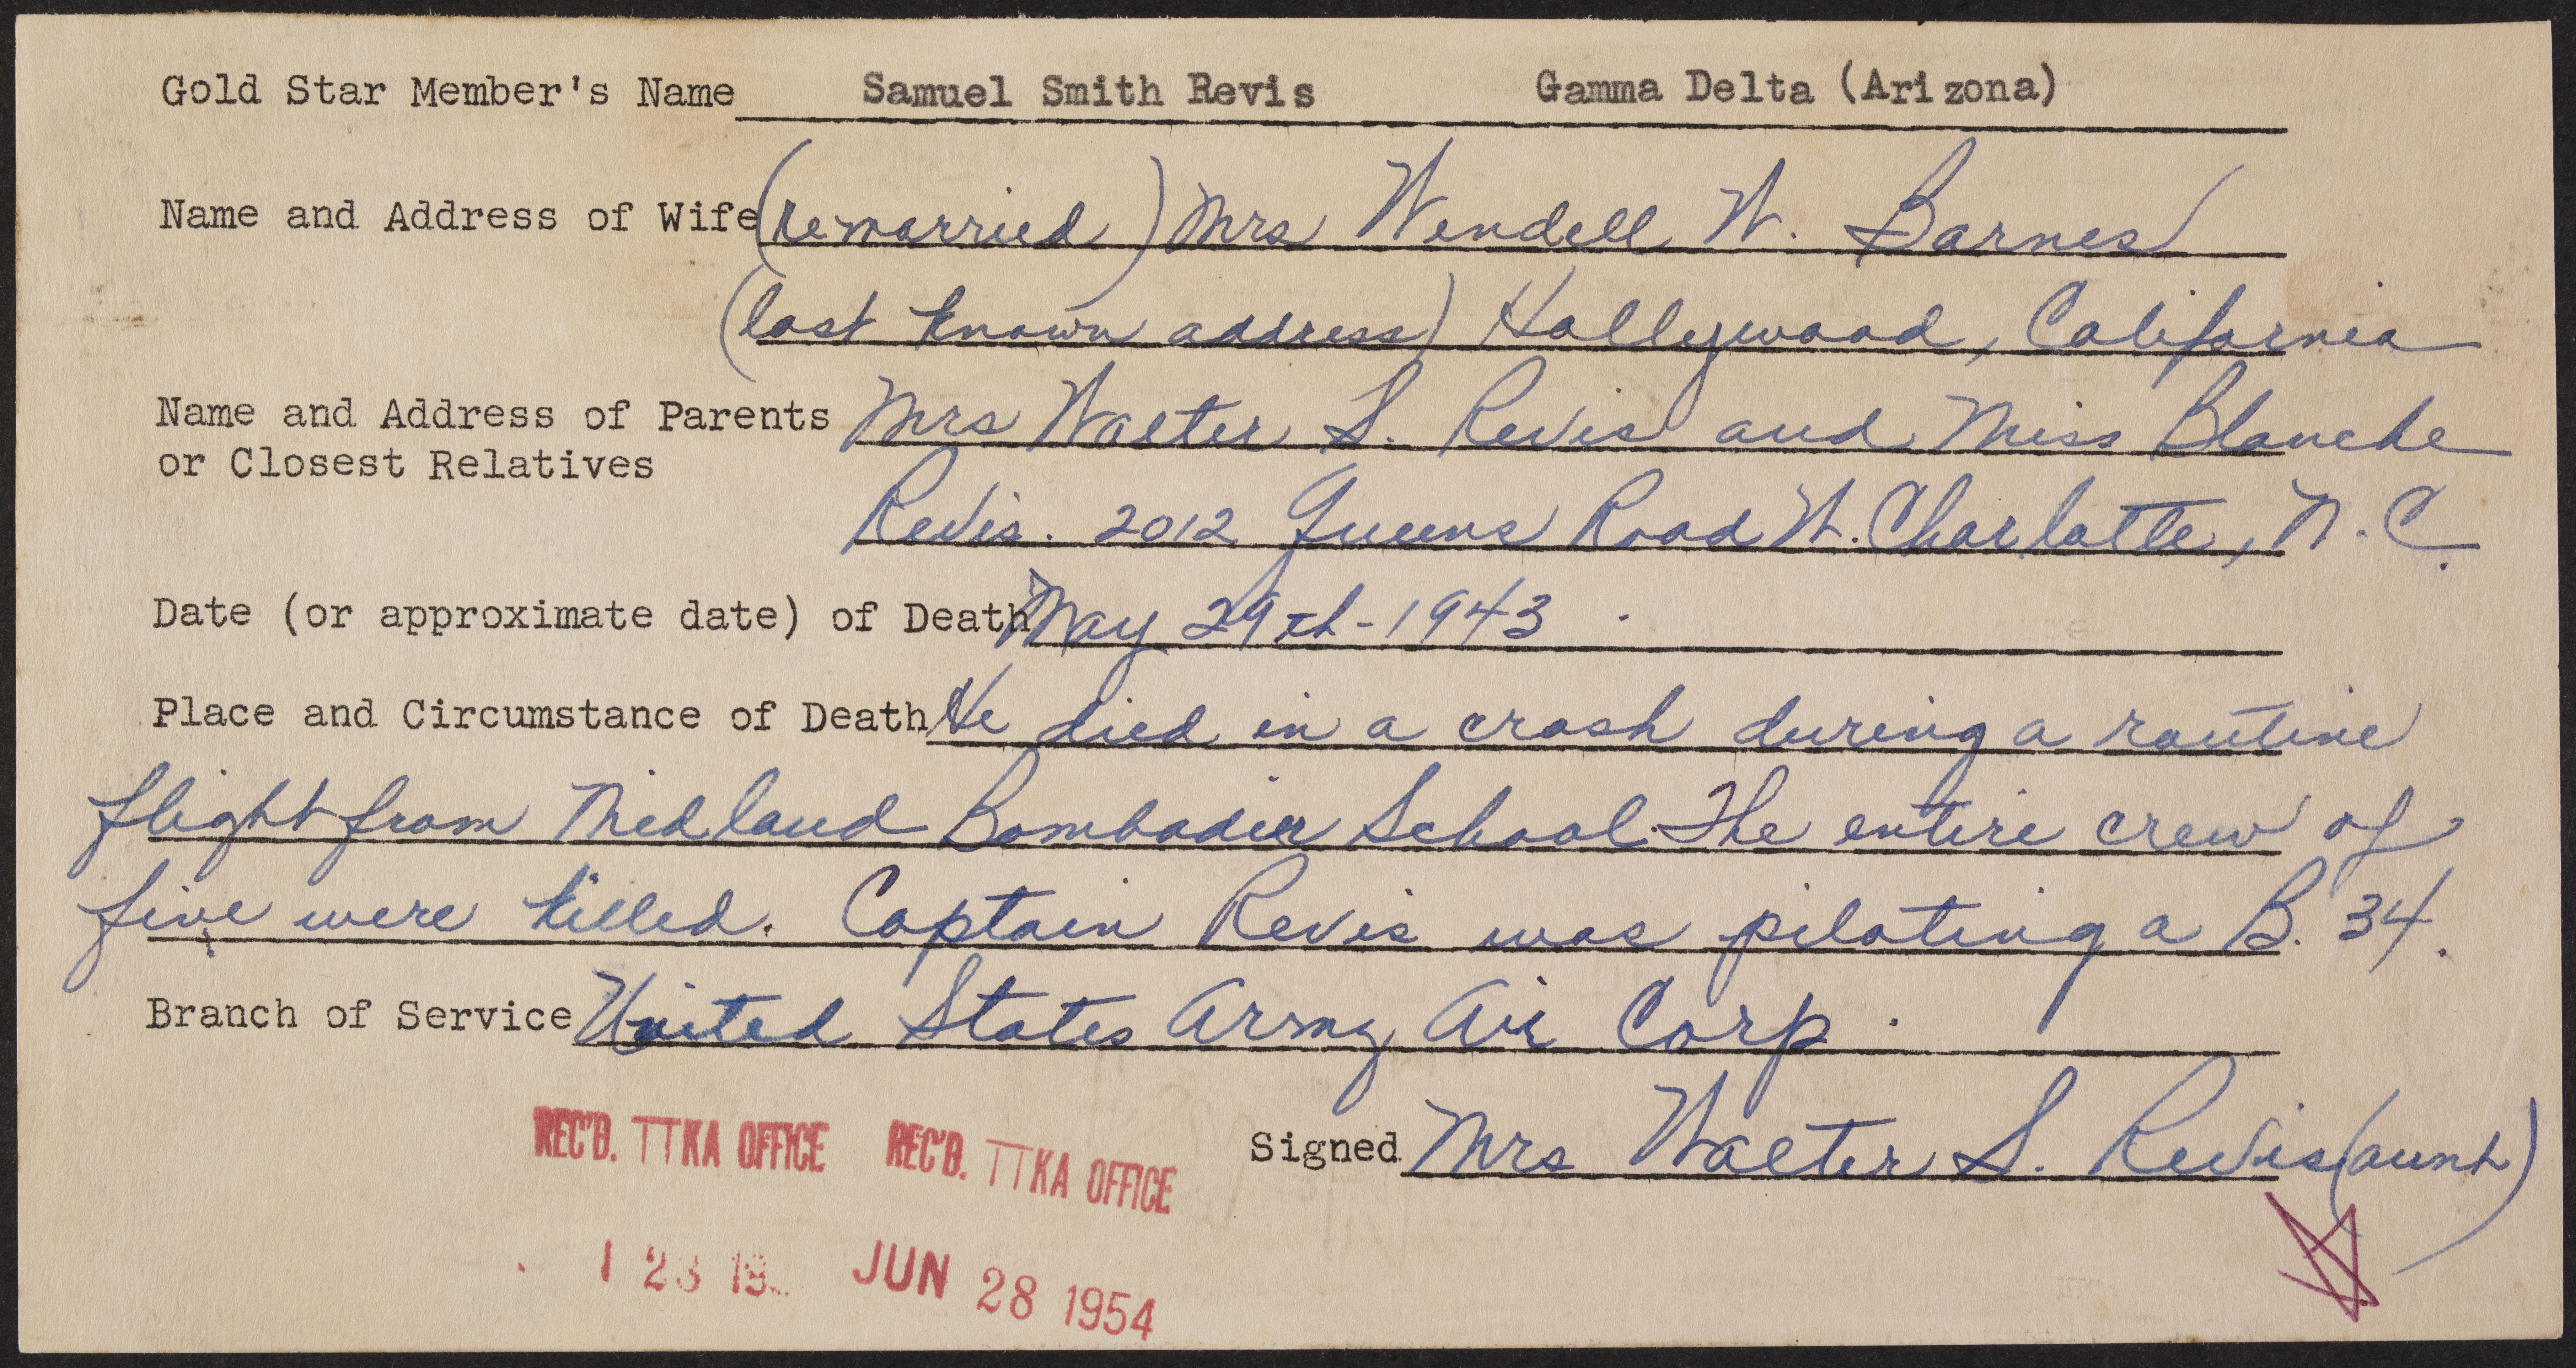 Gold Star Member's Name Samuel Smith Revis Gamma Delta (Arizona)
Name and Address of Wife (remarried) Mrs Wendell W. Barnes
(last known address) Hollywood, California
Name and Address of Parents Mrs Walter S. Revis and Miss Blanche
or Closest Relatives
Revis. 2012 Queens Road W. Charlotte, N.C.
Date (or approximate date) of Death May 29th-1943.
Place and Circumstance of Death He died in a crash during a routine
flight from Midland Bombadier School. The entire crew of
five were killed. Captain Revis was piloting a B. 34.
Branch of Service United States Army Air Corp.
REC'D. TTKA OFFICE REC'D. TTKA OFFICE
Signed Mrs Walter S. Revis (aunt)
JUN 28 1954